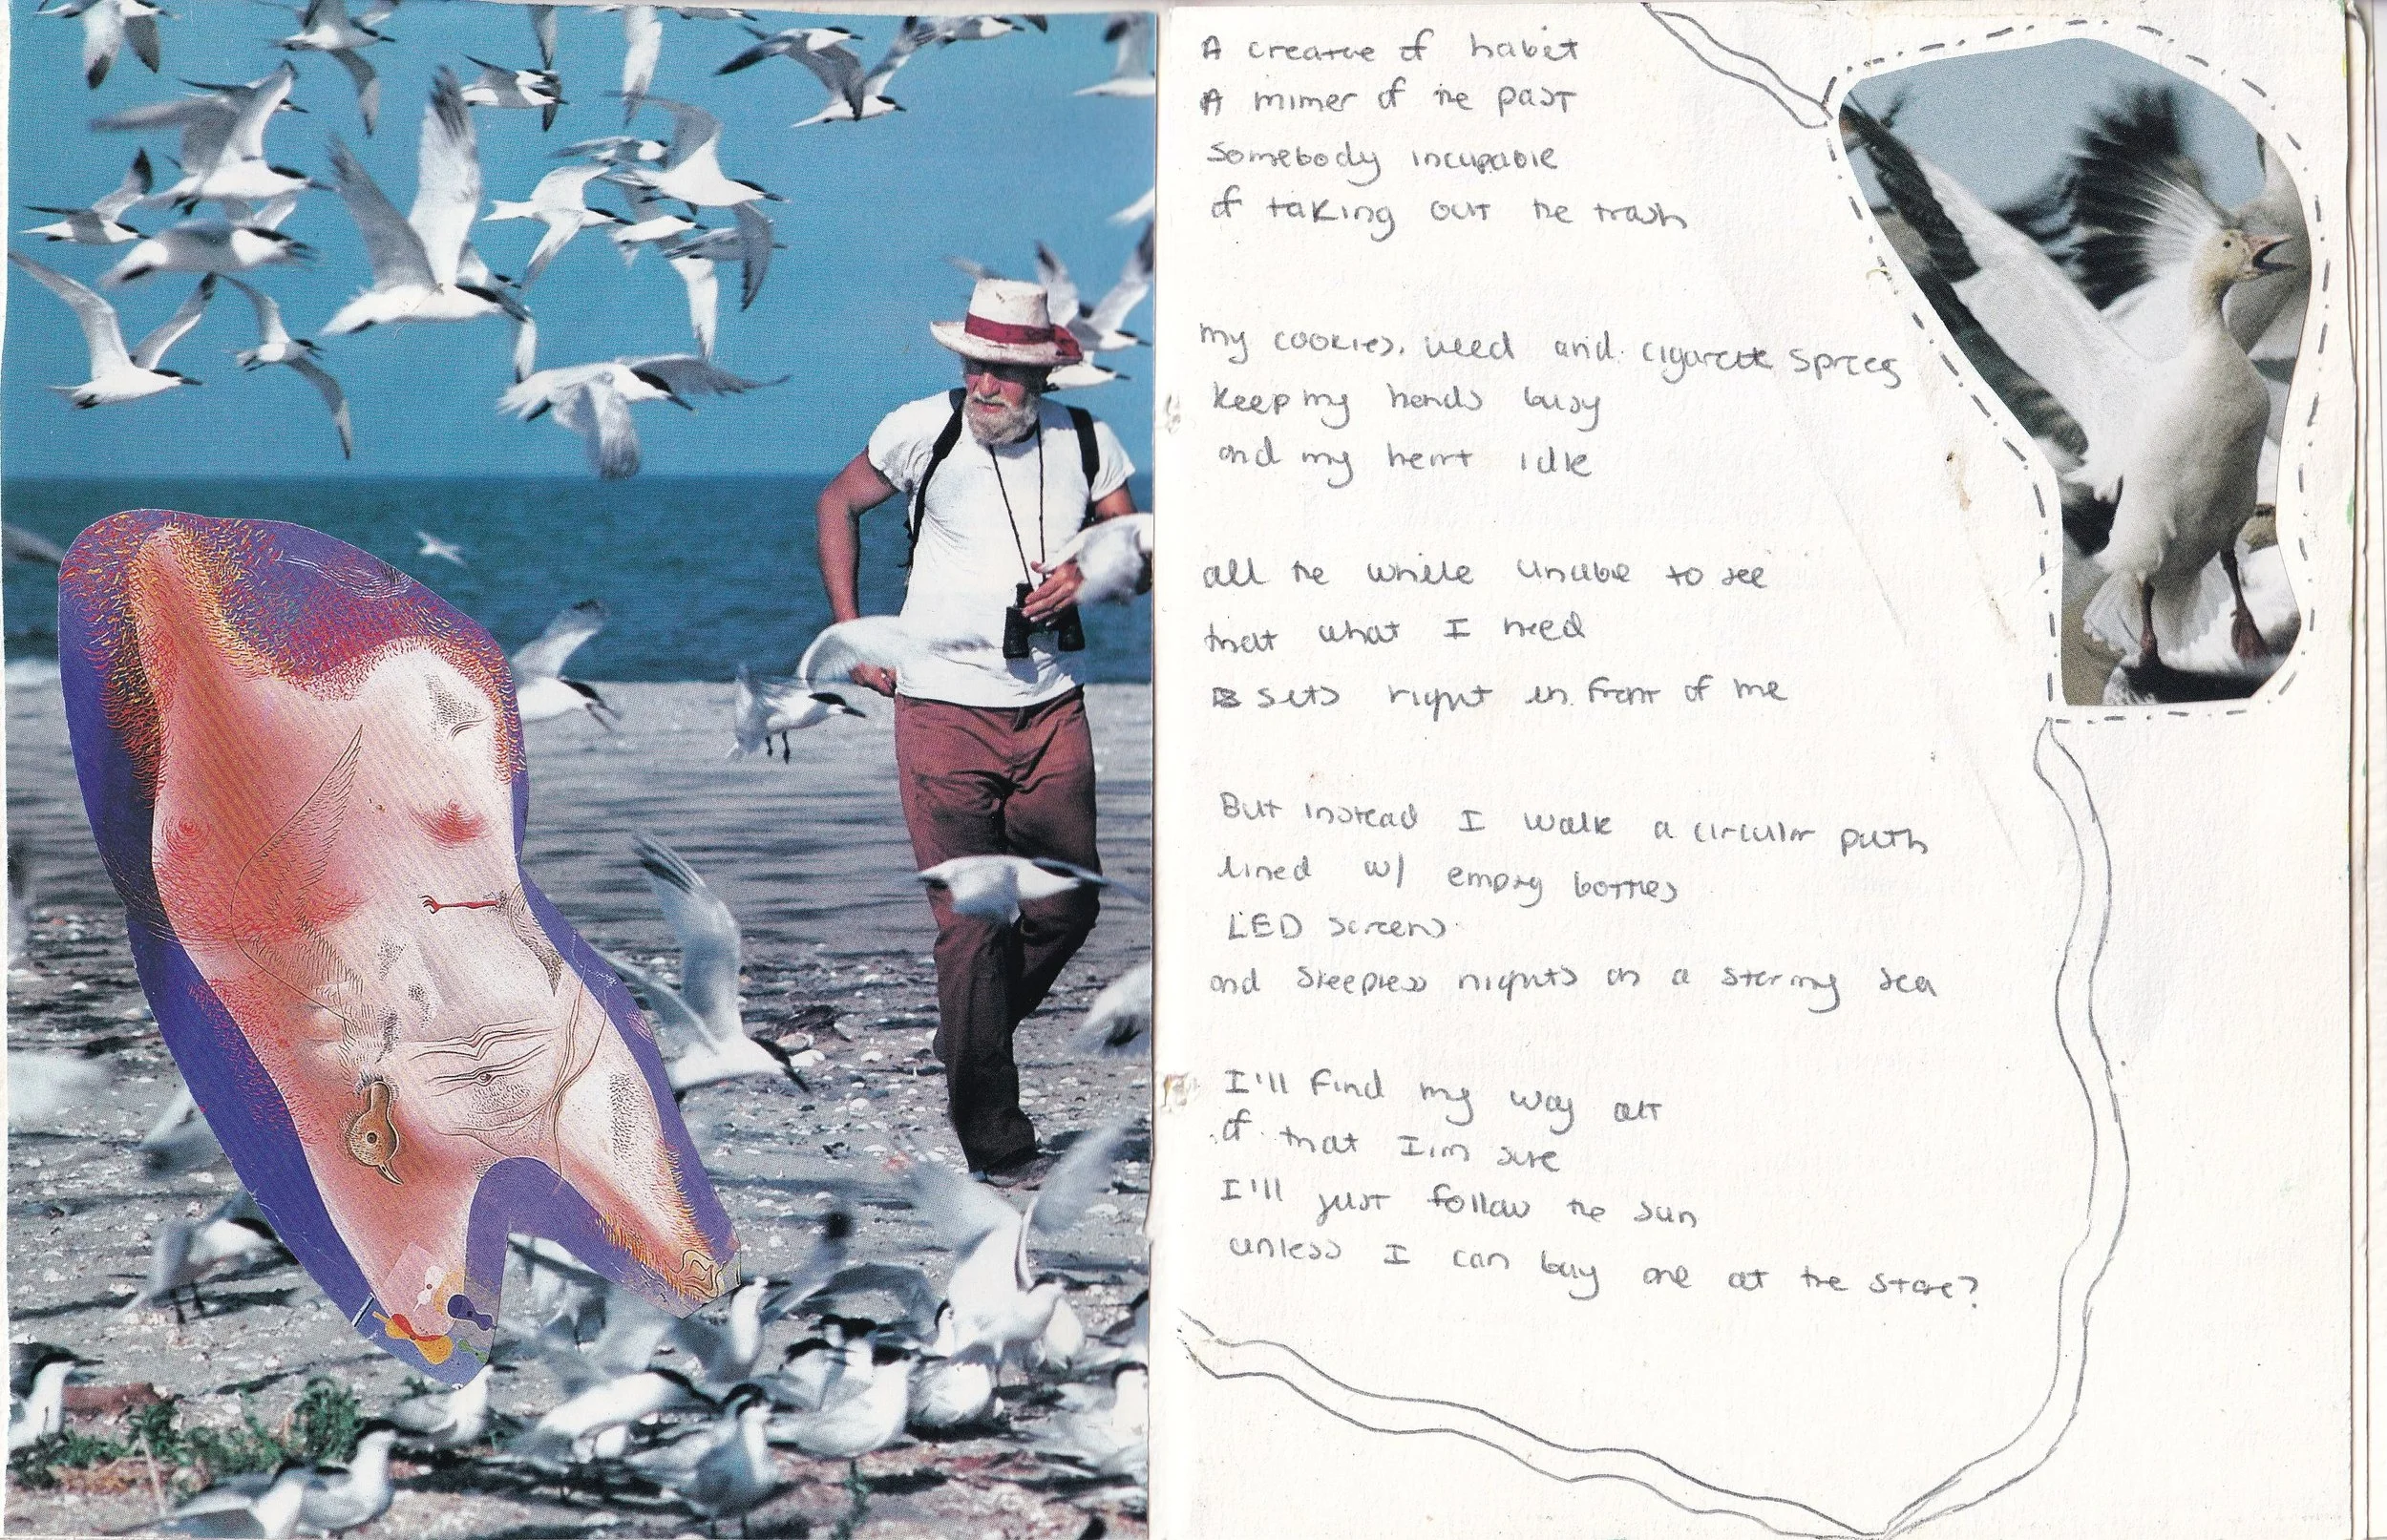 A creature of habit
A mimer of the past
Somebody incapable
of taking out the trash
my cookies, weed and cigarette sprees
keep my hands busy
and my heart idle
all the while unable to see
that what I need
is sits right in front of me
But instead I walk a circular path
lined w/ empty bottles
LED screens
and sleepless nights on a starring sea
I'll find my way out
of that I'm sure
I'll just follow the sun
unless I can buy one at the store?